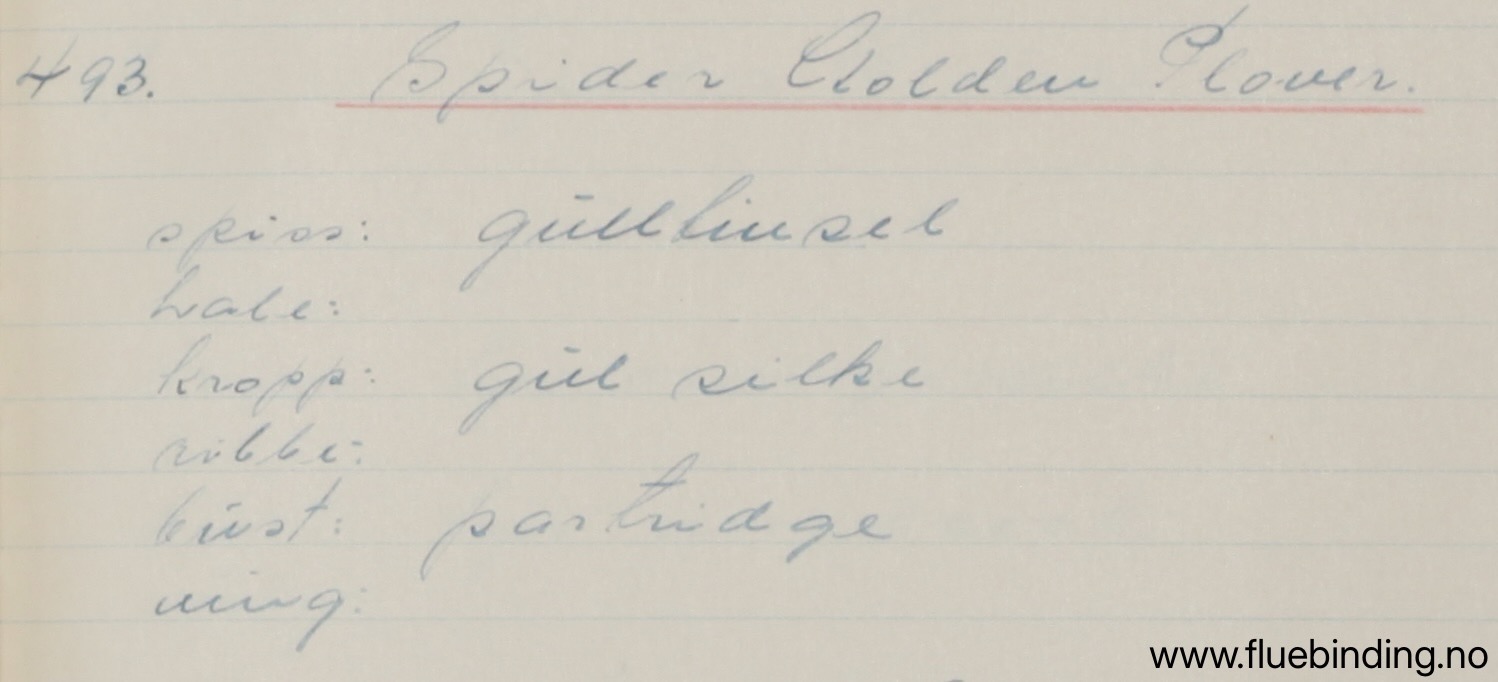 493. Spider Golden Plover.
spiss: gulltinsel
hale:
kropp: gul silke
ribbe:
bust: partridge
ving:
www.fluebinding.no